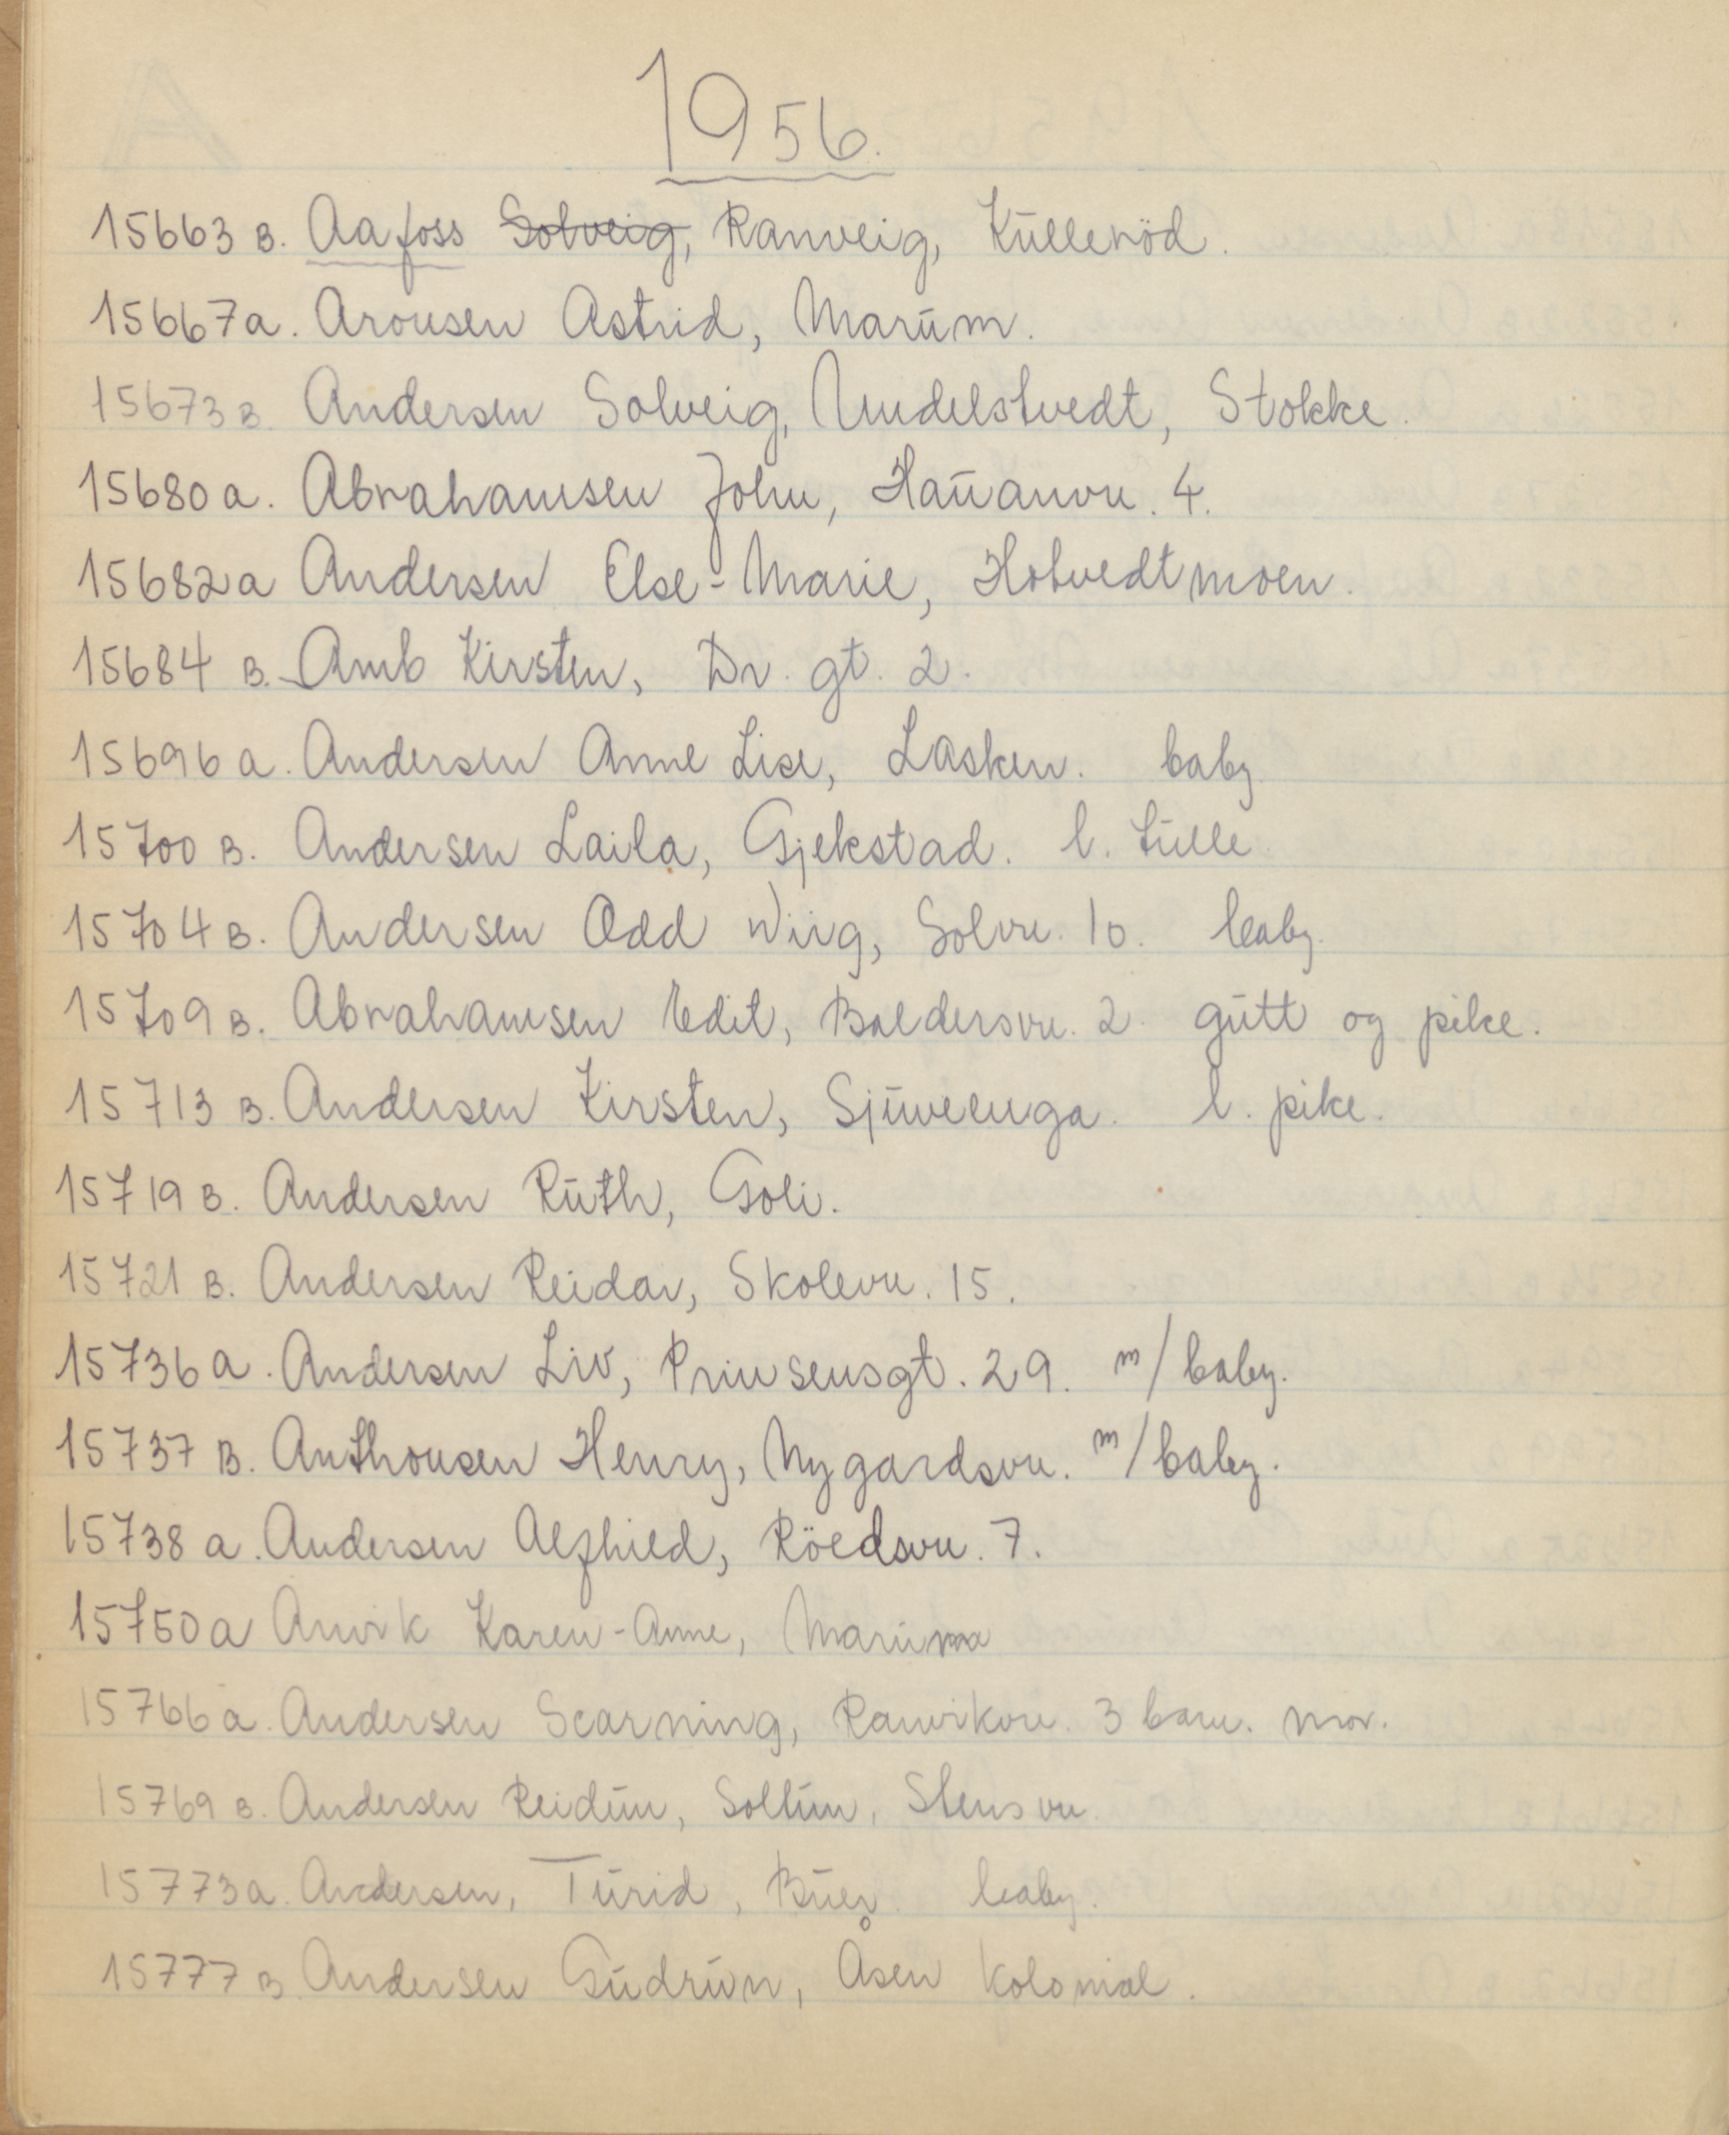 1956.
15663 B. Aafoss Solveig, Ranveig, Kūlleröd.
15667a. Aronsen Astrid, Marūm.
15673 B. Andersen Solveig, Undelstvedt, Stokke.
15680 a. Abrahamsen John, Haūanvn. 4.
15682a Andersen Else-Marie, Hotvedtmoen.
15684 B. Amb Kirsten, Dr. gt. 2.
15696 a. Andersen Anne Lise, Lasken. baby
15700 B. Andersen Laila, Gjekstad. l. tūlle
15704 B. Andersen Odd Wiig, Solvn. 10. baby.
15709 B. Abrahamsen Edit, Baldersvn. 2 gūtt og pike.
15713 B. Andersen Kirsten, Sjūvenga. l. pike.
15719 B. Andersen Rūth, Goli.
15721 B. Andersen Reidar, Skolevn. 15.
15736 a. Andersen Liv, Prinsensgt. 29. m/baby.
15737 B. Anthonsen Henry, Nygardsvn. m/baby.
15738 a. Andersen Alfhild, Rödsvn. 7.
15750 a Anvik Karen-Anne, Marūm
15766 a. Andersen Scarning, Ranvikvn. 3 barn. mor.
15769 B. Andersen Reidūn, Soltūn, Stensvn.
15773a. Andersen, Tūrid, Būer. baby.
15777 B Andersen Gūdrūn, Åsen Kolonial.